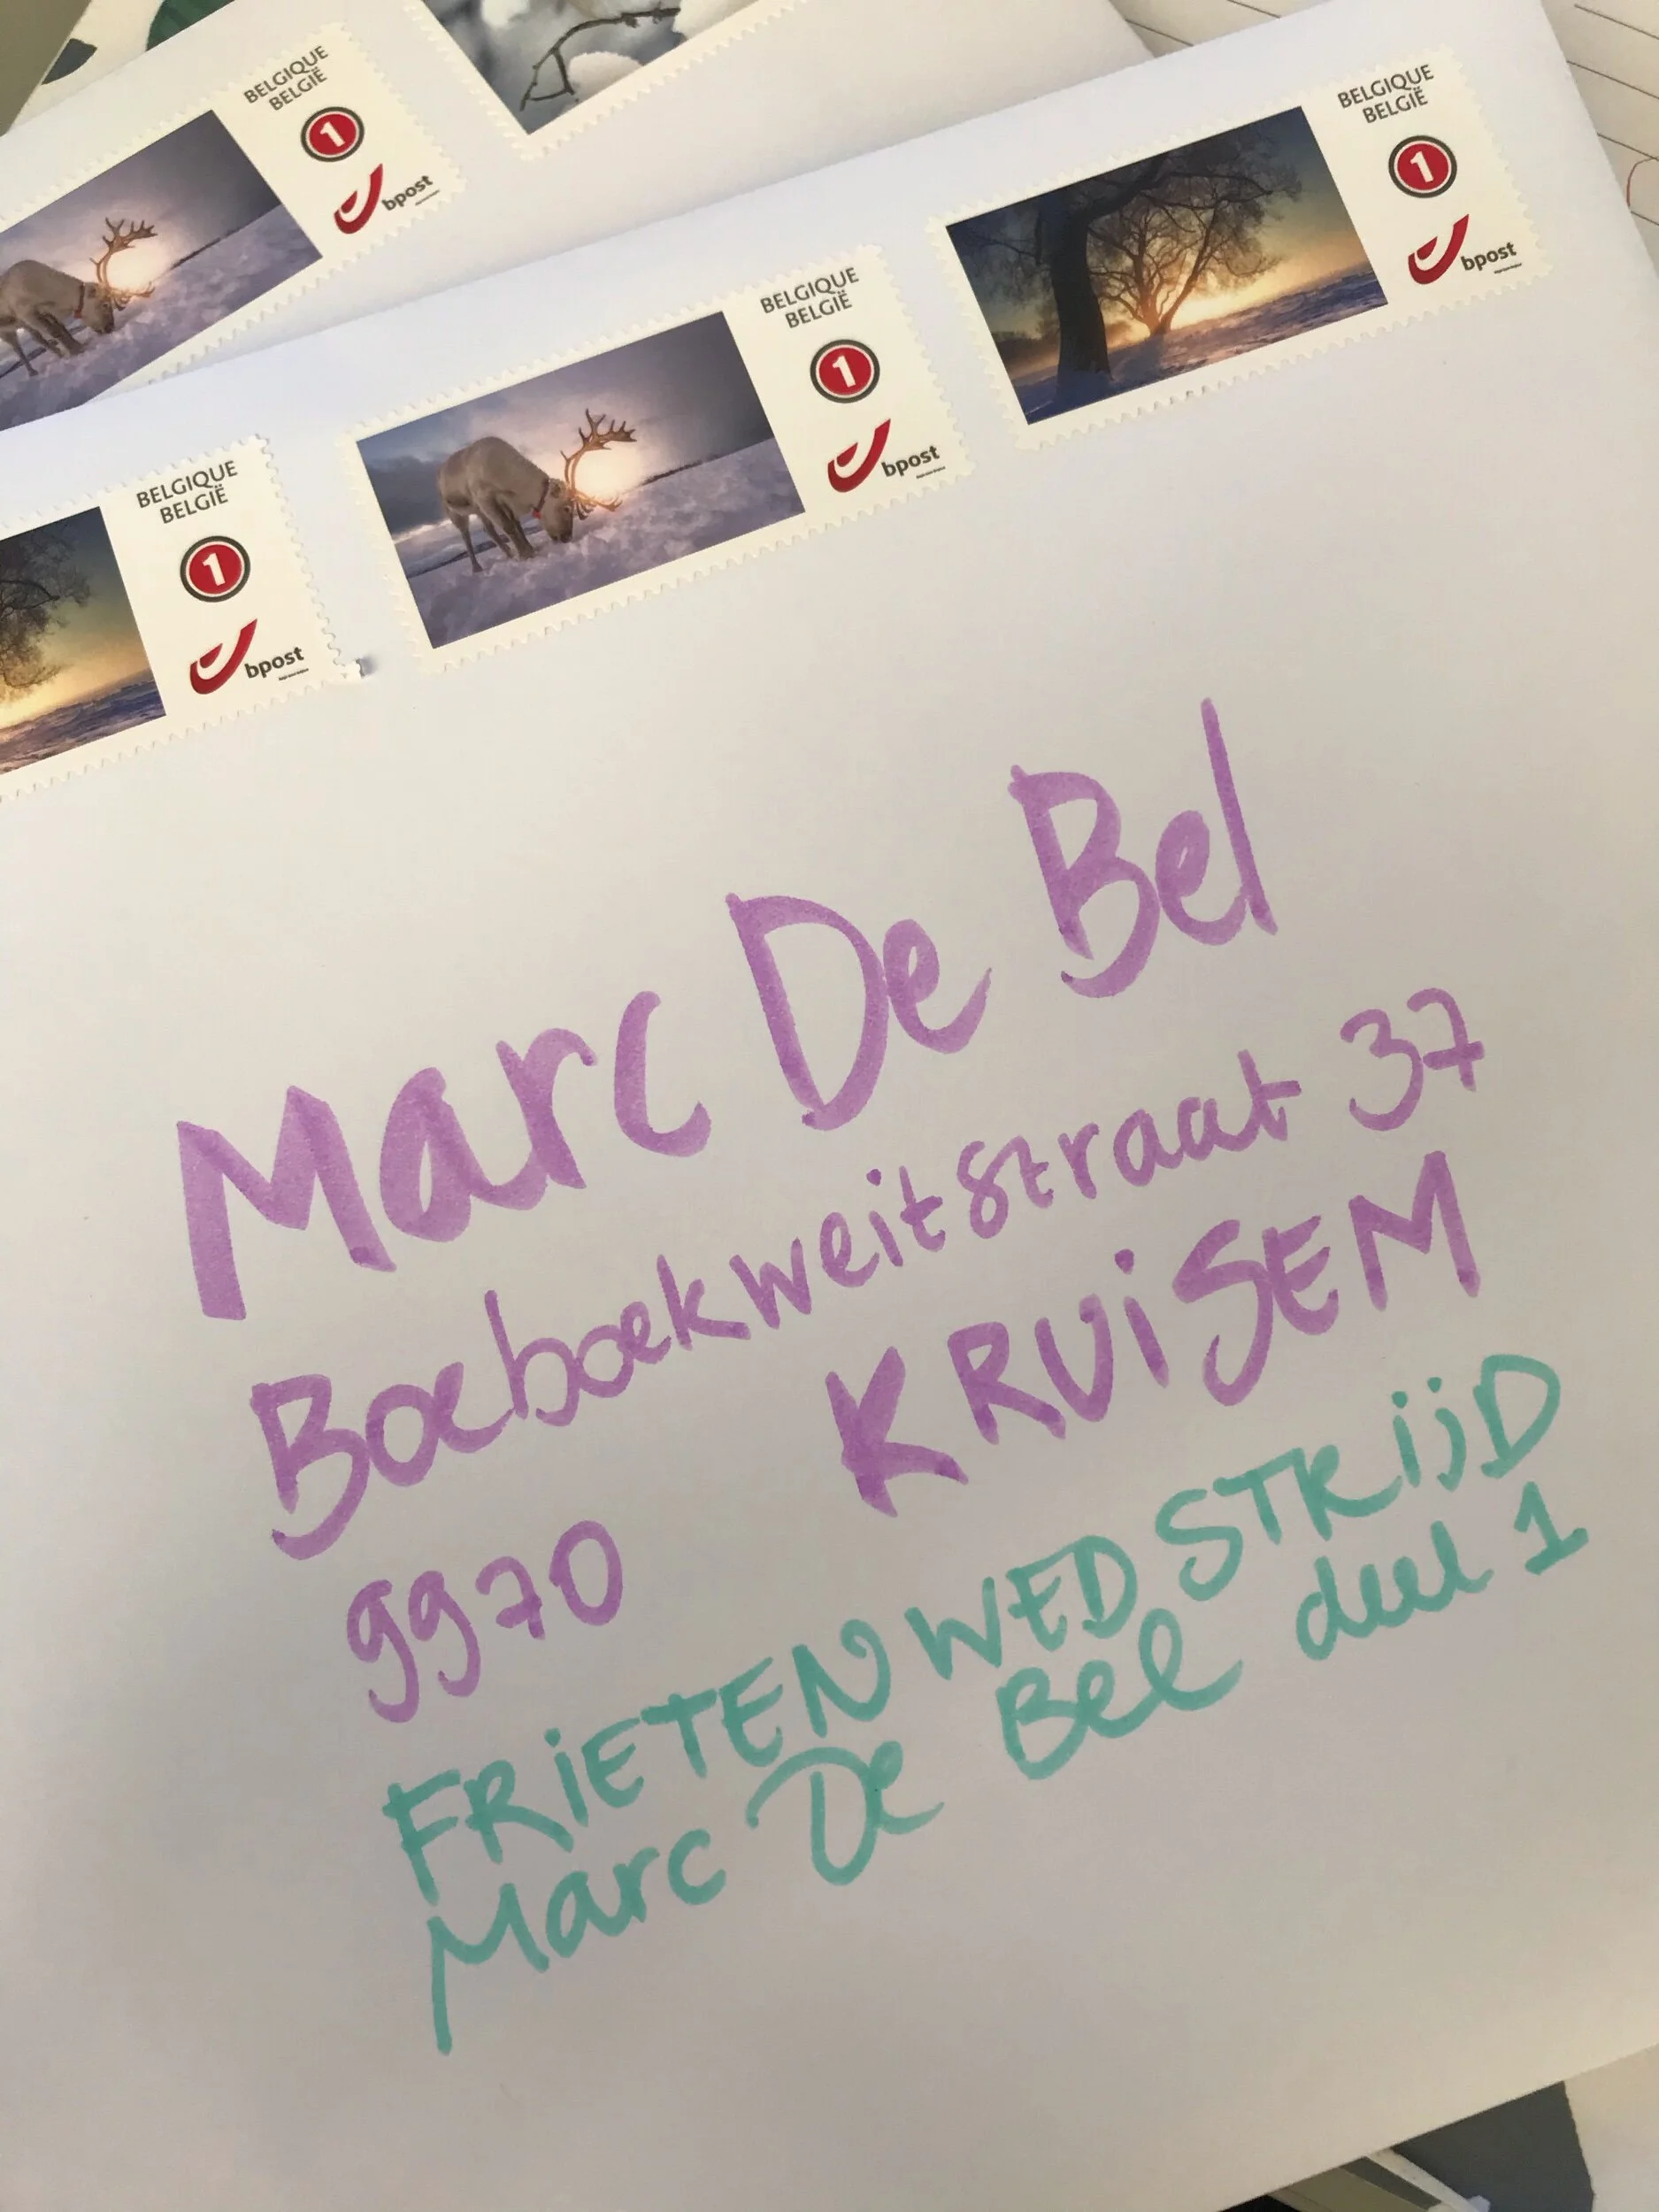 BELGIQUE
BELGIË
1
bpost
BELGIQUE
BELGIË
1
bpost
BELGIQUE
BELGIË
1
bpost
BELGIQUE
BELGIË
1
bpost
Marc De Bel
Boeboekweitstraat 37
9970 KRUiSEM
FRiETENWEDSTRijD
Marc De Bel deel 1